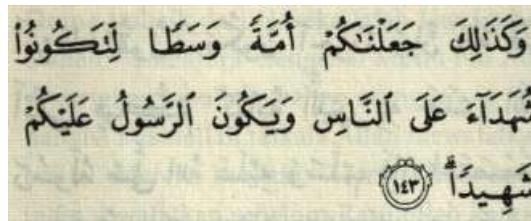 وَكَذَٰلِكَ جَعَلْنَٰكُمْ أُمَّةً وَسَطًا لِّتَكُونُوا۟
شُهَدَآءَ عَلَى ٱلنَّاسِ وَيَكُونَ ٱلرَّسُولُ عَلَيْكُمْ
شَهِيدًا ۗ ١٤٣